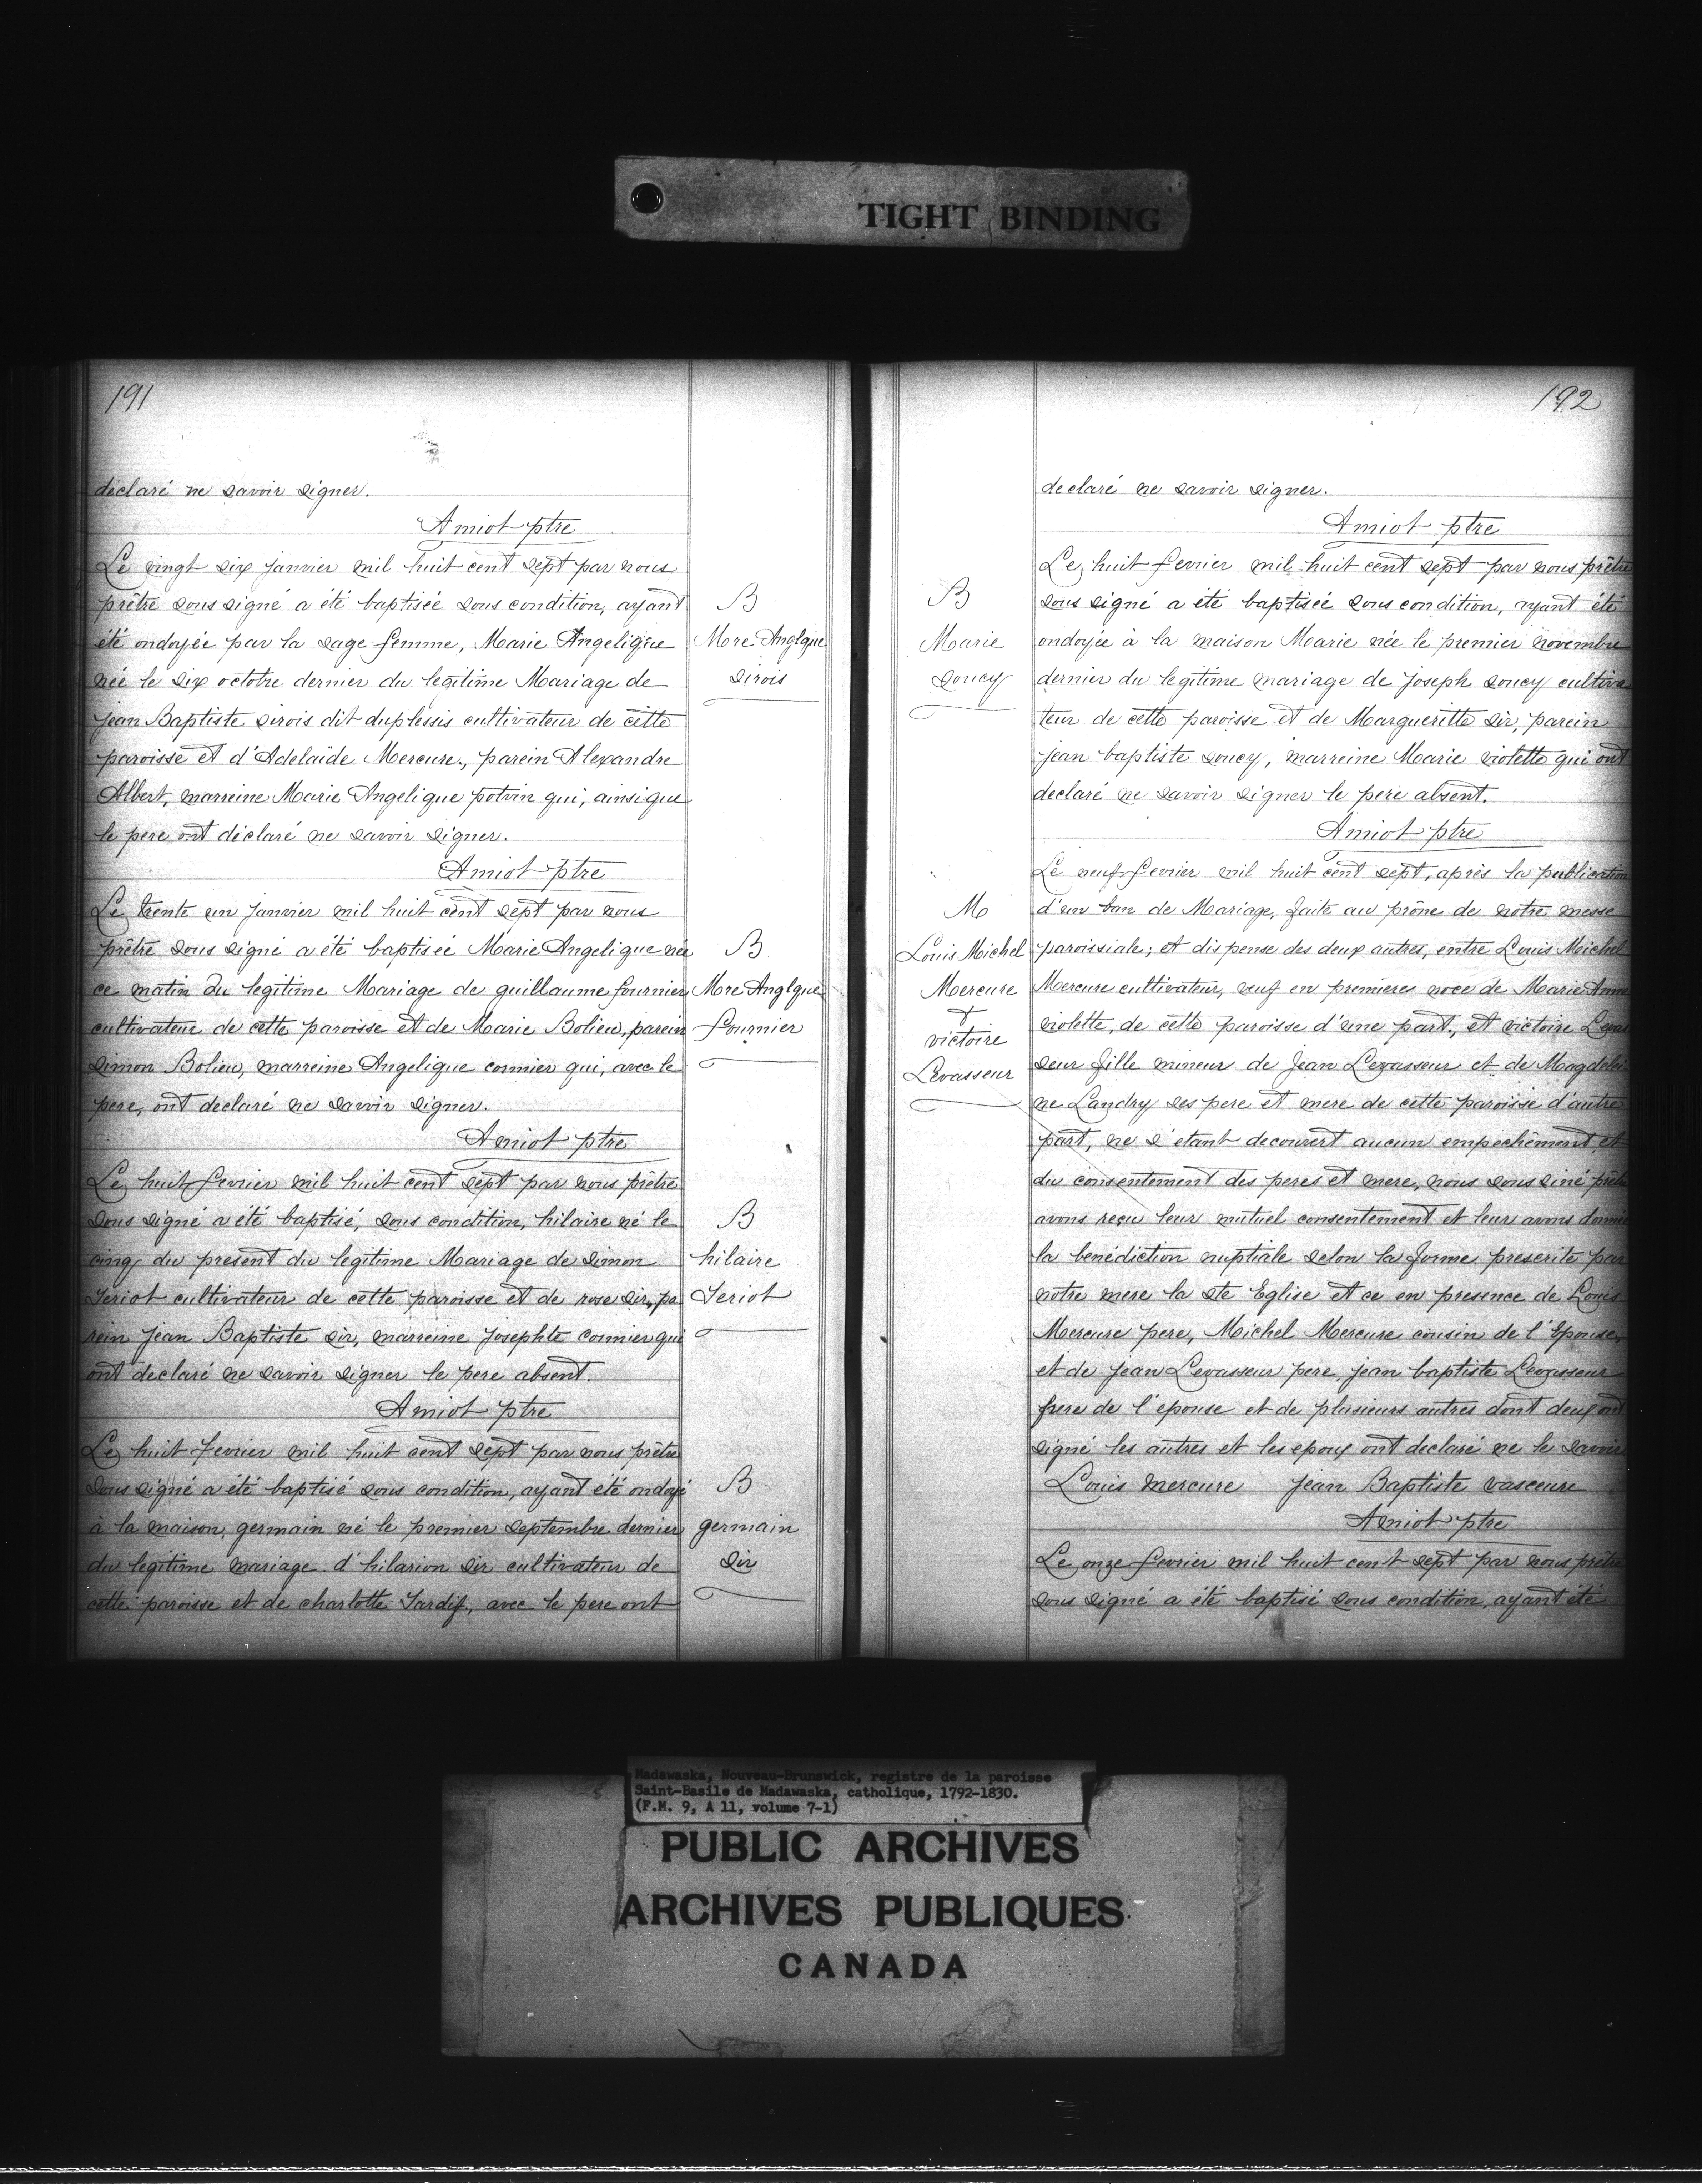 TIGHT BINDING
191
déclaré ne savoir signer.
Amiot ptre
Le vingt six janvier mil huit cent sept par nous
prêtre sous signé a été baptisée sous condition, ayant
été ondoyée par la sage femme, Marie Angelique
née le six octobre dernier du legitime Mariage de
jean Baptiste sirois dit duplessis cultivateur de cette
paroisse et d'Adelaïde Mercure, parein Alexandre
Albert, marreine Marie Angelique potvin qui, ainsi que
le pere ont déclaré ne savoir signer.
Amiot ptre
B
Mre Anglque
sirois
Le trente un janvier mil huit cent sept par nous
prêtre sous signé a été baptisée Marie Angelique née
ce matin du legitime Mariage de guillaume fournier
cultivateur de cette paroisse et de Marie Bolieu, parein
simon Bolieu, marreine Angelique cormier qui, avec le
pere, ont declaré ne savoir signer.
Amiot ptre
B
Mre Anglque
fournier
Le huit fevrier mil huit cent sept par nous prêtre
sous signé a été baptisé, sous condition, hilaire né le
cinq du present du legitime Mariage de simon
Teriot cultivateur de cette paroisse et de rose sir, pa
rein jean Baptiste sir, marreine josephte cormier qui
ont declaré ne savoir signer le pere absent.
Amiot ptre
B
hilaire
Teriot
Le huit fevrier mil huit cent sept par nous prêtre
sous signé a été baptisé sous condition, ayant été ondoyé
à la maison, germain né le premier septembre dernier
du legitime mariage d'hilarion sir cultivateur de
cette paroisse et de charlotte Tardif, avec le pere ont
B
germain
sir
192
declaré ne savoir signer.
Amiot ptre
Le huit fevrier mil huit cent sept par nous prêtre
sous signé a été baptisée sous condition, ayant été
ondoyée à la maison Marie née le premier novembre
dernier du legitime mariage de joseph soucy cultiva
teur de cette paroisse et de Margueritte sir, parein
jean baptiste soucy, marreine Marie violette qui ont
declaré ne savoir signer le pere absent.
Amiot ptre
B
Marie
soucy
Le neuf fevrier mil huit cent sept, après la publication
d'un ban de Mariage, faite au prône de notre messe
paroissiale; et dispense des deux autres, entre Louis Michel
Mercure cultivateur, veuf en premiere noce de Marie Anne
violette, de cette paroisse d'une part, et victoire Levas
seur fille mineur de Jean Levasseur et de Magdelei
ne Landry ses pere et mere de cette paroisse d'autre
part, ne s'etant decouvert aucun empechêment, et
du consentement des peres et mere, nous sous siné prêtre
avons reçu leur mutuel consentement et leur avons donné
la benédiction nuptiale selon la forme prescrite par
notre mere la ste Eglise et ce en presence de Louis
Mercure pere, Michel Mercure cousin de l'Epouse,
et de jean Levasseur pere, jean baptiste Levasseur
frere de l'epouse et de plusieurs autres dont deux ont
signé les autres et les epoux ont declaré ne le savoir
Louis mercure jean Baptiste vasceure
Amiot ptre
M
Louis Michel
Mercure
&
victoire
Levasseur
Le onze fevrier mil huit cent sept par nous prêtre
sous signé a été baptisé sous condition, ayant été
Madawaska, Nouveau-Brunswick, registre de la paroisse
Saint-Basile de Madawaska, catholique, 1792-1830.
(F.M. 9, A 11, volume 7-1)
PUBLIC ARCHIVES
ARCHIVES PUBLIQUES
CANADA